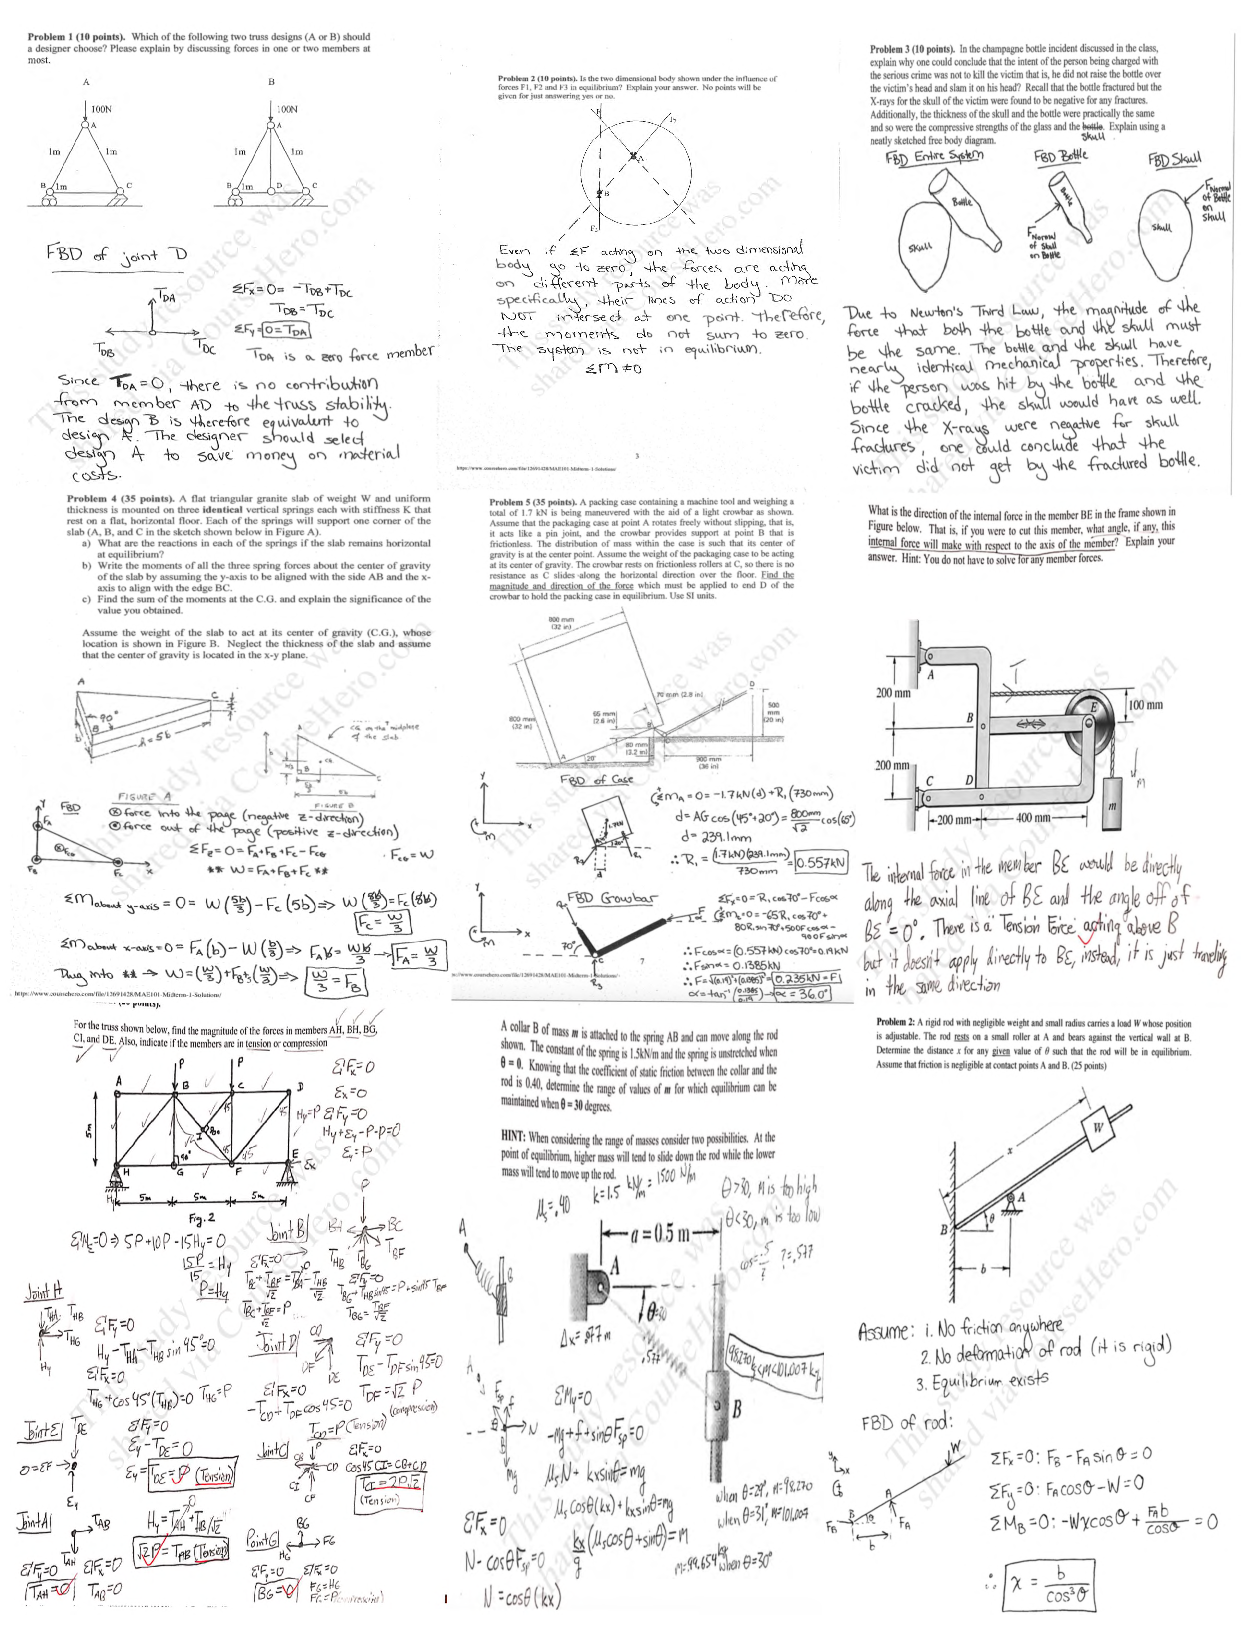 Problem 1 (10 points). Which of the following two truss designs (A or B) should
a designer choose? Please explain by discussing forces in one or two members at
most.
A
B
100N
100N
A
A
1m
1m
1m
1m
B
1m
C
B
1m
D
C
FBD of joint D
TDA
TDB
TDC
ΣFx=0= -TDB+TDC
TDB=TDC
ΣFy=0=TDA
TDA is a zero force member
Since TDA=0, there is no contribution
from member AD to the truss stability.
The design B is therefore equivalent to
design A. The designer should select
design A to save money on material
costs.
Problem 2 (10 points). Is the two dimensional body shown under the influence of
forces F1, F2 and F3 in equilibrium? Explain your answer. No points will be
given for just answering yes or no.
A
B
Even if ΣF acting on the two dimensional
body go to zero, the forces are acting
on different parts of the body. More
specifically, their lines of action DO
NOT intersect at one point. Therefore,
the moments do not sum to zero.
The system is not in equilibrium.
ΣM≠0
3
https://www.coursehero.com/file/12691428/MAE101-Midterm-1-Solutions/
Problem 3 (10 points). In the champagne bottle incident discussed in the class,
explain why one could conclude that the intent of the person being charged with
the serious crime was not to kill the victim that is, he did not raise the bottle over
the victim's head and slam it on his head? Recall that the bottle fractured but the
X-rays for the skull of the victim were found to be negative for any fractures.
Additionally, the thickness of the skull and the bottle were practically the same
and so were the compressive strengths of the glass and the bottle. Explain using a
skull
neatly sketched free body diagram.
FBD Entire System
FBD Bottle
FBD Skull
Bottle
Skull
Bottle
FNormal
of Skull
on Bottle
Skull
FNormal
of Bottle
on
Skull
Due to Newton's Third Law, the magnitude of the
force that both the bottle and the skull must
be the same. The bottle and the skull have
nearly identical mechanical properties. Therefore,
if the person was hit by the bottle and the
bottle cracked, the skull would have as well.
Since the X-rays were negative for skull
fractures, one could conclude that the
victim did not get by the fractured bottle.
Problem 4 (35 points). A flat triangular granite slab of weight W and uniform
thickness is mounted on three identical vertical springs each with stiffness K that
rest on a flat, horizontal floor. Each of the springs will support one corner of the
slab (A, B, and C in the sketch shown below in Figure A).
a) What are the reactions in each of the springs if the slab remains horizontal
at equilibrium?
b) Write the moments of all the three spring forces about the center of gravity
of the slab by assuming the y-axis to be aligned with the side AB and the x-
axis to align with the edge BC.
c) Find the sum of the moments at the C.G. and explain the significance of the
value you obtained.
Assume the weight of the slab to act at its center of gravity (C.G.), whose
location is shown in Figure B. Neglect the thickness of the slab and assume
that the center of gravity is located in the x-y plane.
A
C
90°
B
b
h=5b
CG on the midplane
of the slab
A
B
CG
C
5b
FIGURE A
FIGURE B
FBD
⊗ force into the page (negative z-direction)
⊙ force out of the page (positive z-direction)
ΣFz=0=FA+FB+FC-FCG
FCG=W
** W=FA+FB+FC **
ΣM about y-axis = 0 = W(5b/3) - FC(5b) ⇒ W(5b/3)=FC(5b)
FC=W/3
ΣM about x-axis=0=FA(b)-W(b/3) ⇒ FAb=Wb/3 → FA=W/3
Plug into ** → W=(W/3)+FB+(W/3) ⇒ W/3=FB
https://www.coursehero.com/file/12691428/MAE101-Midterm-1-Solutions/
Problem 5 (35 points). A packing case containing a machine tool and weighing a
total of 1.7 kN is being maneuvered with the aid of a light crowbar as shown.
Assume that the packaging case at point A rotates freely without slipping, that is,
it acts like a pin joint, and the crowbar provides support at point B that is
frictionless. The distribution of mass within the case is such that its center of
gravity is at the center point. Assume the weight of the packaging case to be acting
at its center of gravity. The crowbar rests on frictionless rollers at C, so there is no
resistance as C slides along the horizontal direction over the floor. Find the
magnitude and direction of the force which must be applied to end D of the
crowbar to hold the packing case in equilibrium. Use SI units.
800 mm
(32 in)
70 mm (2.8 in)
D
65 mm
(2.6 in)
500
mm
(20 in)
800 mm
(32 in)
80 mm
(3.2 in)
900 mm
(36 in)
A
20°
FBD of Case
ΣMA=0=-1.7kN(d)+R1(730mm)
d=AG cos(45°+20°)=800mm/√2 cos(65°)
d=239.1mm
∴ R1=(1.7kN)(239.1mm)/730mm=0.557kN
FBD Crowbar
70°
ΣFx=0=R1cos70°-Fcosα
ΣMc=0=-65R1cos70°+
80R1sin70°+500Fcosα-
900Fsinα
∴Fcosα=(0.557kN)cos70°=0.19kN
∴Fsinα=0.1385kN
∴F=√(0.19)²+(0.1385)²=0.235kN=F
α=tan⁻¹(0.1385/0.19)→α=36.0°
7
s://www.coursehero.com/file/12691428/MAE101-Midterm-1-Solutions/
What is the direction of the internal force in the member BE in the frame shown in
Figure below. That is, if you were to cut this member, what angle, if any, this
internal force will make with respect to the axis of the member? Explain your
answer. Hint: You do not have to solve for any member forces.
T
A
200 mm
B
E
100 mm
200 mm
C
D
m
200 mm
400 mm
The internal force in the member BE would be directly
along the axial line of BE and the angle off of
BE=0°. There is a Tension Force acting above B
but it doesn't apply directly to BE, instead, it is just traveling
in the same direction
For the truss shown below, find the magnitude of the forces in members AH, BH, BG,
CI, and DE. Also, indicate if the members are in tension or compression
P
P
A
B
C
D
5m
I
H
G
F
E
5m
5m
5m
Fig. 2
ΣFx=0
Ex=0
Hy=P ΣFy=0
Hy+Ey-P-P=0
Ey=P
ΣME=0⇒ 5P+10P-15Hy=0
15P/15=Hy
P=Hy
Joint H
ΣFy=0
Hy-THA-THB sin45°=0
ΣFx=0
THG+cos45°(THB)=0 THG=P
Joint B
ΣFx=0
ΣFy=0
TBG=TBF/√2
Joint D
ΣFy=0
TDE-TDFsin45=0
TDF=√2 P
(compression)
ΣFx=0
-TCD+TDFcos45=0
TCD=P(Tension)
Joint E
ΣFy=0
Ey-TDE=0
Ey=TDE=P (Tension)
0=EF
Ey
Joint C
ΣFx=0
cos45CI=CB+CD
TCI=2P√2
(Tension)
Joint A
TAB
TAH
ΣFy=0
TAH=0
ΣFx=0
TAB=0
Hy=TAH+THB/√2
√2P=TAB (Tension)
Point G
BG
HG
FG
ΣFy=0
BG=0
ΣFx=0
FG=HG
A collar B of mass m is attached to the spring AB and can move along the rod
shown. The constant of the spring is 1.5kN/m and the spring is unstretched when
θ = 0. Knowing that the coefficient of static friction between the collar and the
rod is 0.40, determine the range of values of m for which equilibrium can be
maintained when θ = 30 degrees.
HINT: When considering the range of masses consider two possibilities. At the
point of equilibrium, higher mass will tend to slide down the rod while the lower
mass will tend to move up the rod.
μs=.40
k=1.5 kN/m=1500 N/m
θ>30, M is too high
θ<30, m is too low
a = 0.5 m
A
θ=30
B
Δx=.577m
.577
98.270kg<M<101.007kg
ΣFy=0
-Mg+f+sinθFsp=0
μsN+kxsinθ=mg
μscosθ(kx)+kxsinθ=mg
kx/g(μscosθ+sinθ)=M
ΣFx=0
N-cosθFsp=0
N=cosθ(kx)
when θ=29°, m=98.270
when θ=31°, m=101.007
M=99.654kg when θ=30°
Problem 2: A rigid rod with negligible weight and small radius carries a load W whose position
is adjustable. The rod rests on a small roller at A and bears against the vertical wall at B.
Determine the distance x for any given value of θ such that the rod will be in equilibrium.
Assume that friction is negligible at contact points A and B. (25 points)
W
x
A
B
θ
b
Assume: 1. No friction anywhere
2. No deformation of rod (it is rigid)
3. Equilibrium exists
FBD of rod:
W
A
B
FB
FA
b
ΣFx=0: FB-FAsinθ=0
ΣFy=0: FAcosθ-W=0
ΣMB=0: -Wxcosθ+FAb/cosθ=0
∴ x=b/cos³θ